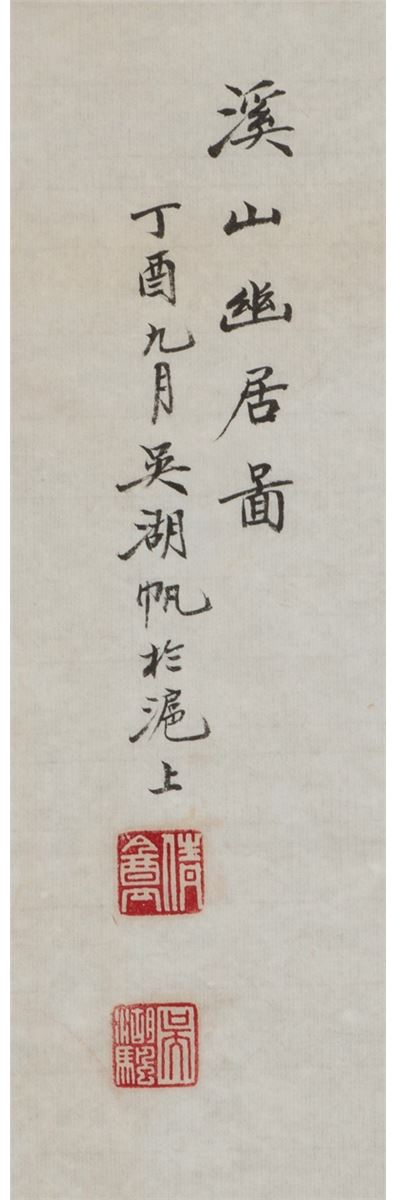 溪山幽居啚
丁酉九月吳湖帆於滬上
倩盦
吳湖颿